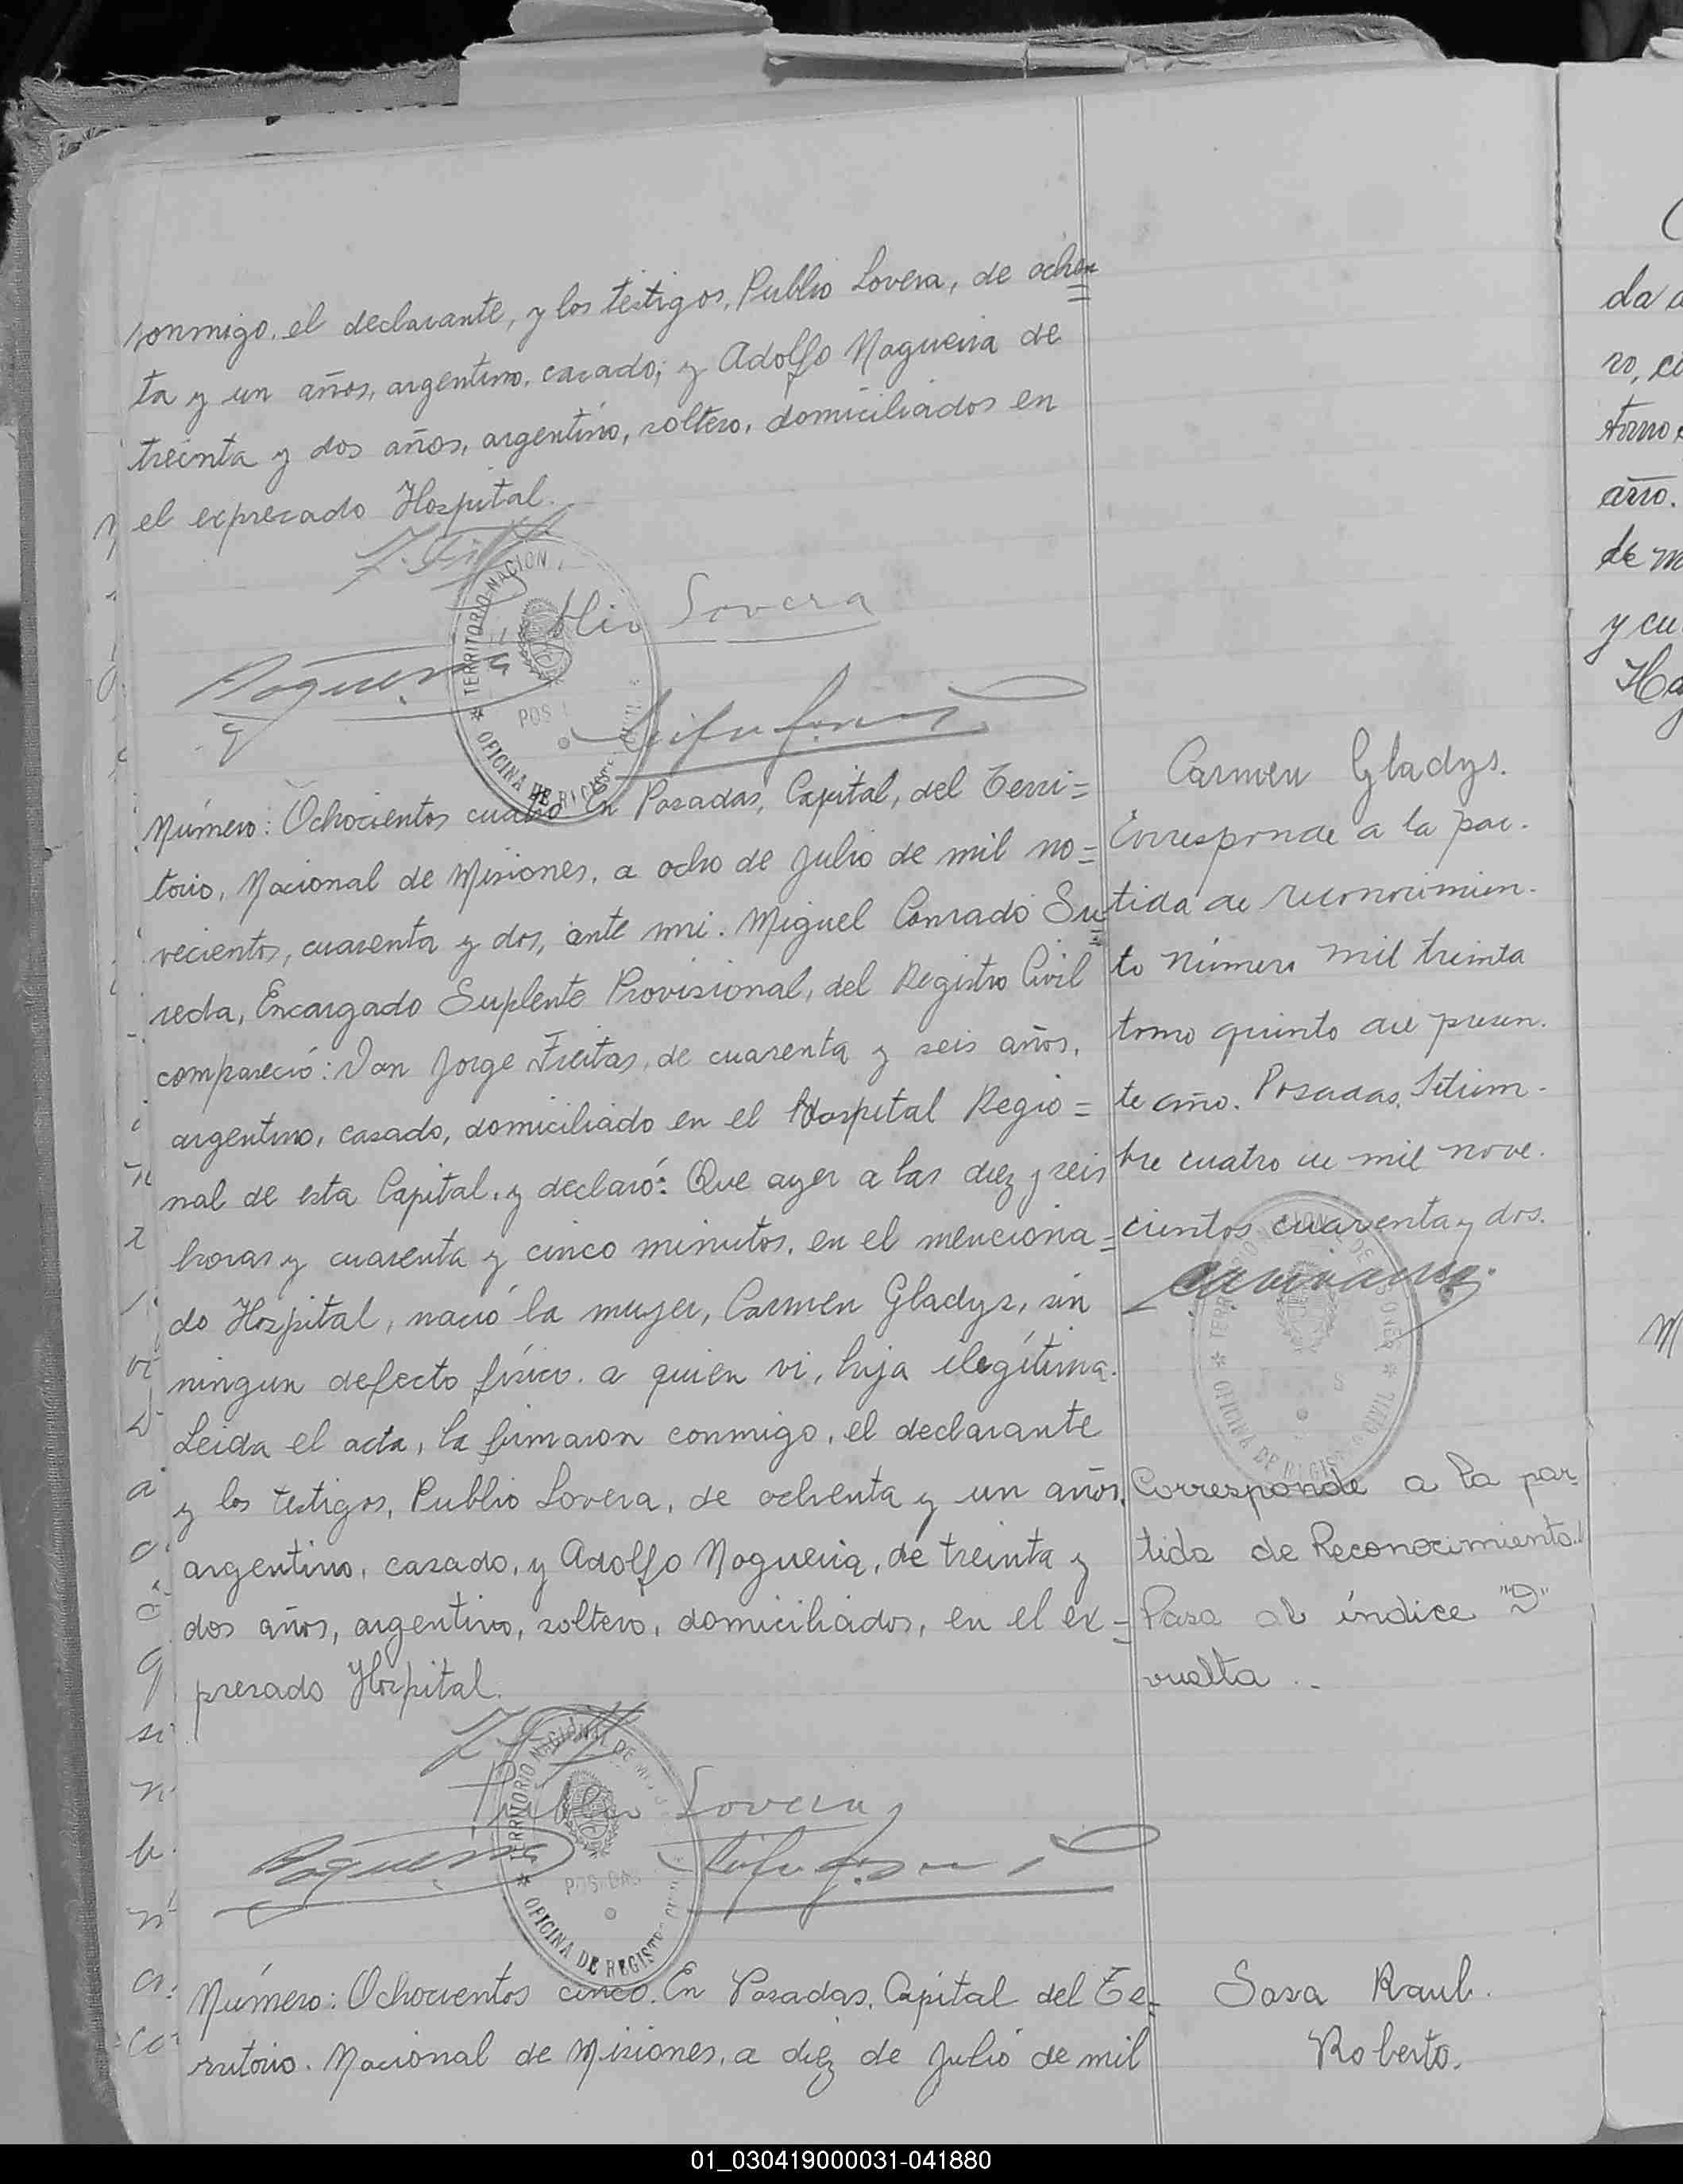 conmigo, el declarante, y los testigos, Publio Lovera, de ochen=
ta y un años, argentino, casado; y Adolfo Nogueira de
treinta y dos años, argentino, soltero, domiciliados en
el expresado Hospital.
Publio Lovera
Nogueira
TERRITORIO NACION
POS
OFICINA DE
Número: Ochocientos cuatro. En Posadas, Capital, del Terri=
torio, Nacional de Misiones, a ocho de Julio de mil no=
vecientos, cuarenta y dos, ante mi. Miguel Conrado Su=
reda, Encargado Suplente Provisional, del Registro Civil
compareció: Don Jorge Freitas, de cuarenta y seis años,
argentino, casado, domiciliado en el Hospital Regio=
nal de esta Capital, y declaró: Que ayer a las diez y seis
horas y cuarenta y cinco minutos, en el menciona=
do Hospital, nació la mujer, Carmen Gladys, sin
ningun defecto físico. a quien vi, hija ilegítima.
Leida el acta, la firmaron conmigo, el declarante
y los testigos, Publio Lovera, de ochenta y un años,
argentino, casado, y Adolfo Nogueira, de treinta y
dos años, argentino, soltero, domiciliados, en el ex=
presado Hospital.
Publio Lovera
Nogueira
TERRITORIO NACIONAL DE
POSADAS
OFICINA DE REGISTRO
Número: Ochocientos cinco. En Posadas, Capital del Te=
rritorio. Nacional de Misiones, a diez de Julio de mil
Carmen Gladys.
Corresponde a la par-
tida de reconocimien-
to número mil treinta
tomo quinto del presen-
te año. Posadas, Setiem-
bre cuatro de mil nove-
cientos cuarenta y dos.
OFICINA DE REGIS
Corresponde a la par-
tida de Reconocimiento.
Pasa al índice "D"
vuelta.
Sosa Raul.
Roberto.
01_030419000031-041880